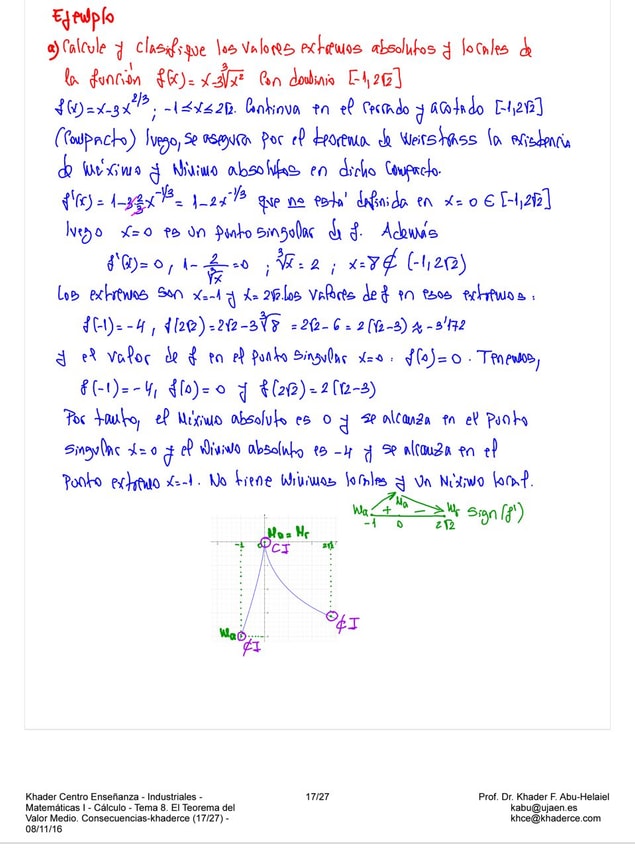 Ejemplo
a) Calcule y clasifique los valores extremos absolutos y locales de
la función f(x) = x-3∛x² con dominio [-1, 2√2]
f(x) = x-3x^2/3 ; -1 ≤ x ≤ 2√2. Continua en el cerrado y acotado [-1, 2√2]
(compacto) luego, se asegura por el teorema de Weirstrass la existencia
de Máximo y Mínimo absolutos en dicho compacto.
f'(x) = 1-3 2/3 x^-1/3 = 1-2x^-1/3 que no está definida en x=0 ∈ [-1, 2√2]
luego x=0 es un punto singular de f. Además
f'(x)=0, 1- 2/∛x =0 ; ∛x = 2 ; x=8 ∉ (-1, 2√2)
Los extremos son x=-1 y x=2√2. Los valores de f en esos extremos:
f(-1) = -4, f(2√2) = 2√2-3∛8 = 2√2-6 = 2(√2-3) ≈ -3'172
y el valor de f en el punto singular x=0: f(0)=0. Tenemos,
f(-1) = -4, f(0) = 0 y f(2√2) = 2(√2-3)
Por tanto, el Máximo absoluto es 0 y se alcanza en el punto
singular x=0 y el mínimo absoluto es -4 y se alcanza en el
punto extremo x=-1. No tiene mínimos locales y un Máximo local.
ma + Ma - mr Sign(f')
-1 0 2√2
Ma = Mr
-1 0 2√2
CI
¢I
ma
¢I
Khader Centro Enseñanza - Industriales -
Matemáticas I - Cálculo - Tema 8. El Teorema del
Valor Medio. Consecuencias-khaderce (17/27) -
08/11/16
17/27
Prof. Dr. Khader F. Abu-Helaiel
kabu@ujaen.es
khce@khaderce.com